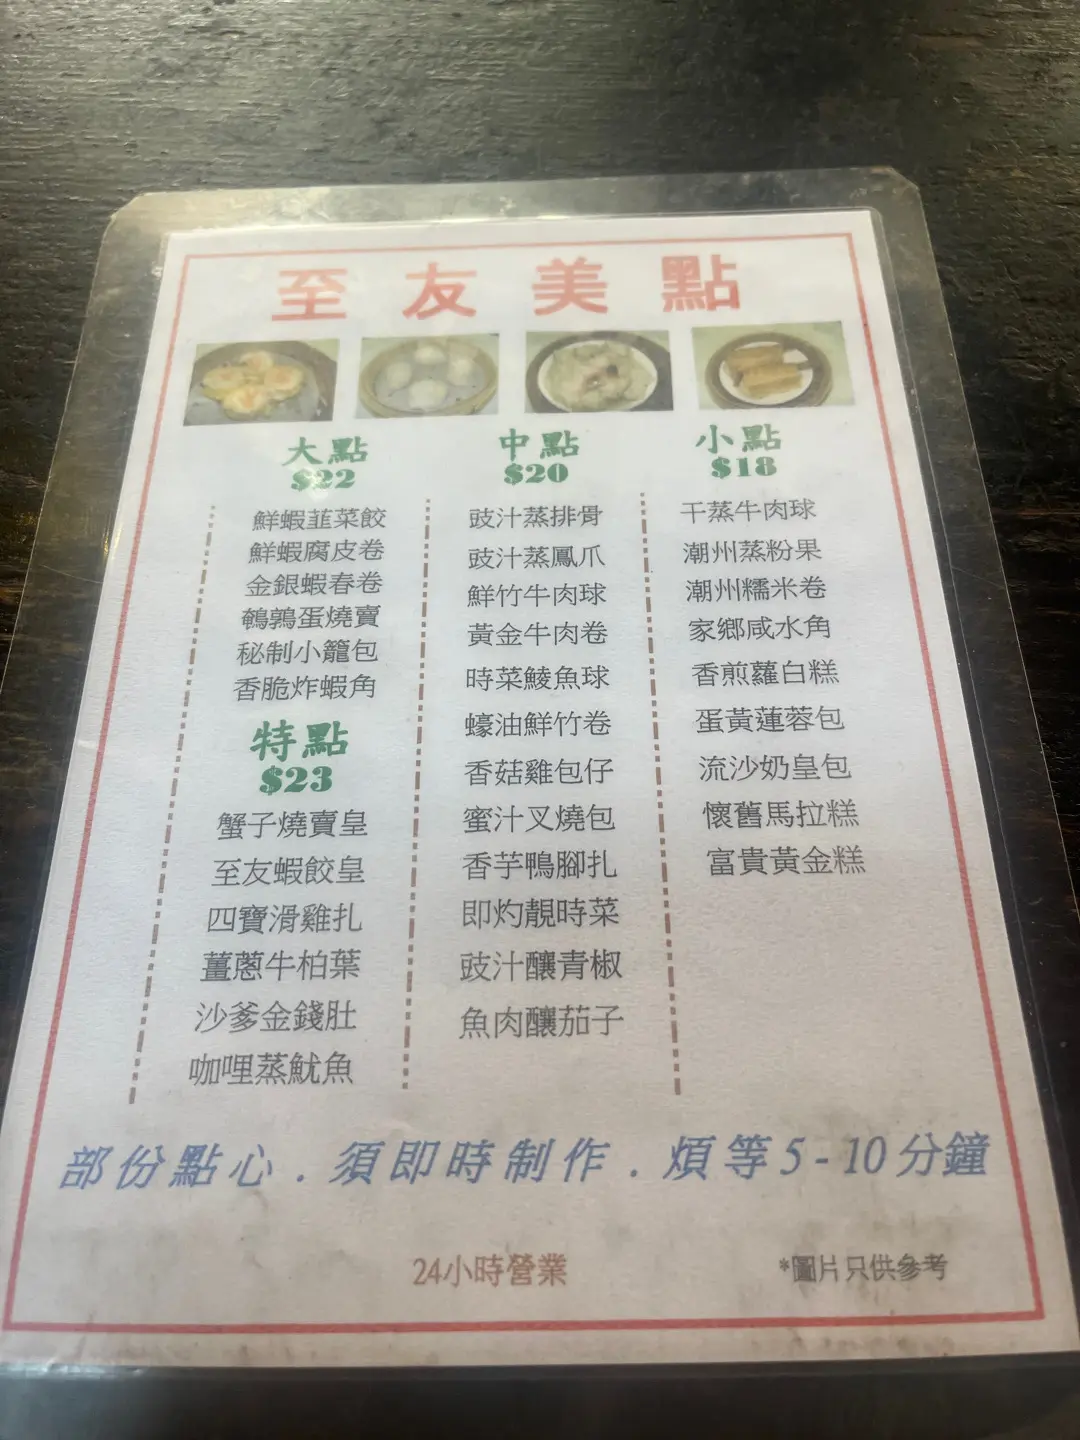 至友美點
大點
$22
鮮蝦韮菜餃
鮮蝦腐皮卷
金銀蝦春卷
鵪鶉蛋燒賣
秘制小籠包
香脆炸蝦角
特點
$23
蟹子燒賣皇
至友蝦餃皇
四寶滑雞扎
薑蔥牛柏葉
沙爹金錢肚
咖哩蒸魷魚
中點
$20
豉汁蒸排骨
豉汁蒸鳳爪
鮮竹牛肉球
黃金牛肉卷
時菜鯪魚球
蠔油鮮竹卷
香菇雞包仔
蜜汁叉燒包
香芋鴨腳扎
即灼靚時菜
豉汁釀青椒
魚肉釀茄子
小點
$18
干蒸牛肉球
潮州蒸粉果
潮州糯米卷
家鄉咸水角
香煎蘿白糕
蛋黃蓮蓉包
流沙奶皇包
懷舊馬拉糕
富貴黃金糕
部份點心.須即時制作.煩等5-10分鐘
24小時營業
*圖片只供參考